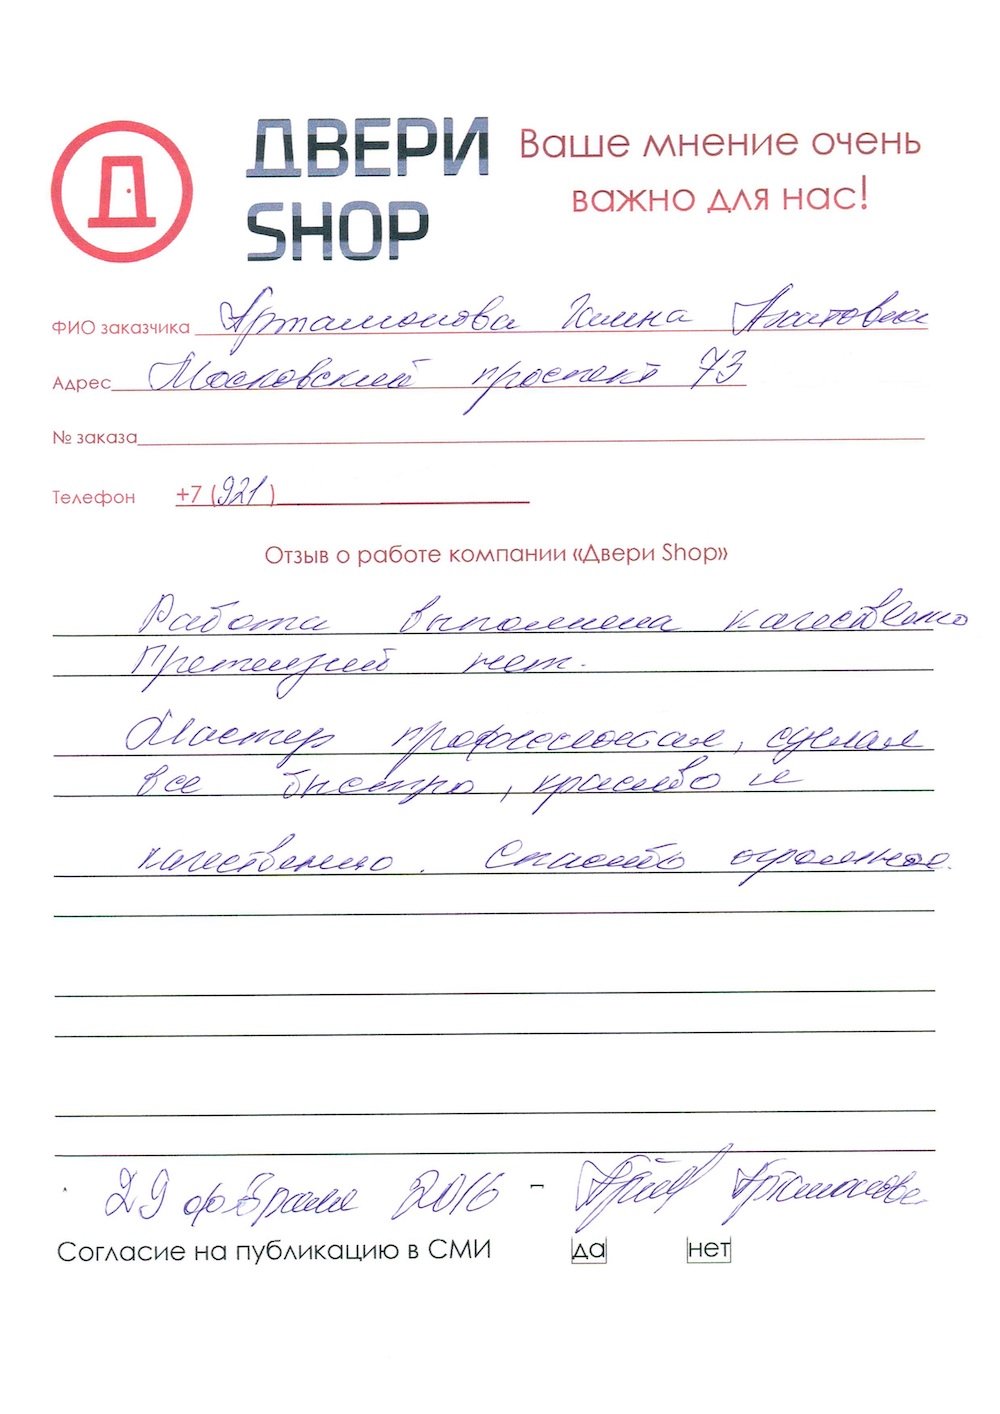 ДВЕРИ
SHOP
Ваше мнение очень
важно для нас!
ФИО заказчика Артамонова
Адрес Московский проспект 73
№ заказа
Телефон +7 (921)
Отзыв о работе компании «Двери Shop»
Работа выполнена качественно
Претензий нет.
Мастер профессионал, сделал
все быстро, красиво и
качественно. Спасибо огромное.
29 февраля 2016 - Артамонова
Согласие на публикацию в СМИ да нет